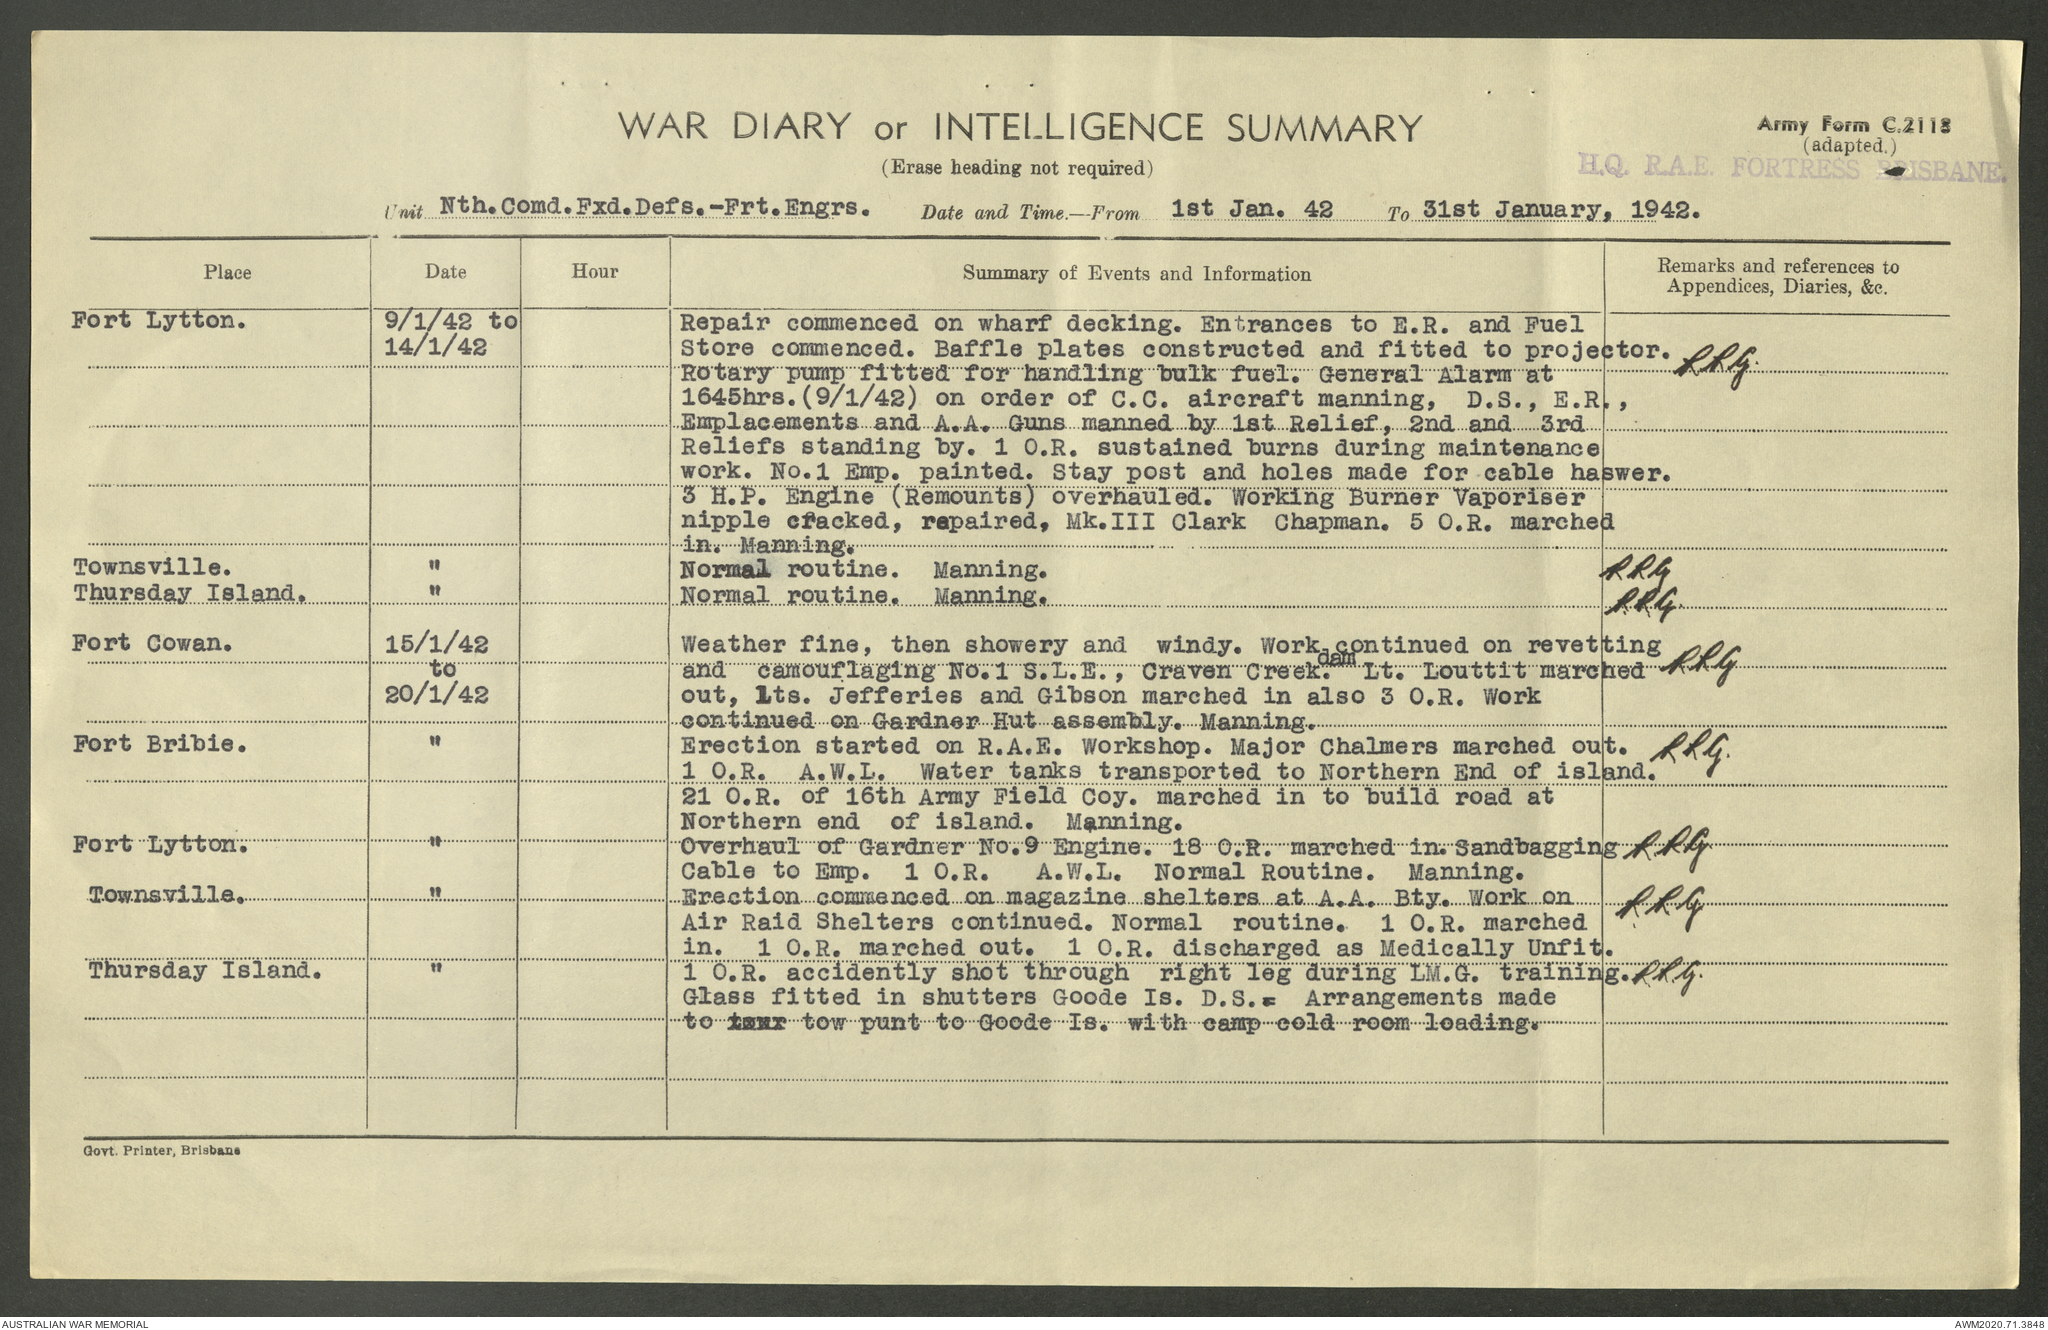 WAR DIARY or INTELLIGENCE SUMMARY
Army Form C.2118
(adapted.)
(Erase heading not required)
H.Q. R.A.E. FORTRESS BRISBANE.
Unit Nth.Comd.Fxd.Defs.-Frt.Engrs. Date and Time.—From 1st Jan. 42 To 31st January, 1942.
Place Date Hour Summary of Events and Information Remarks and references to
Appendices, Diaries, &c.
Fort Lytton. 9/1/42 to Repair commenced on wharf decking. Entrances to E.R. and Fuel
14/1/42 Store commenced. Baffle plates constructed and fitted to projector. RRG.
Rotary pump fitted for handling bulk fuel. General Alarm at
1645hrs.(9/1/42) on order of C.C. aircraft manning, D.S., E.R.,
Emplacements and A.A. Guns manned by 1st Relief, 2nd and 3rd
Reliefs standing by. 1 O.R. sustained burns during maintenance
work. No.1 Emp. painted. Stay post and holes made for cable haswer.
3 H.P. Engine (Remounts) overhauled. Working Burner Vaporiser
nipple cracked, repaired, Mk.III Clark Chapman. 5 O.R. marched
in. Manning.
Townsville. " Normal routine. Manning. RRG
Thursday Island. " Normal routine. Manning. RRG.
Fort Cowan. 15/1/42 Weather fine, then showery and windy. Work continued on revetting
to and camouflaging No.1 S.L.E., Craven Creek dam. Lt. Louttit marched RRG
20/1/42 out, Lts. Jefferies and Gibson marched in also 3 O.R. Work
continued on Gardner Hut assembly. Manning.
Fort Bribie. " Erection started on R.A.E. Workshop. Major Chalmers marched out. RRG.
1 O.R. A.W.L. Water tanks transported to Northern End of island.
21 O.R. of 16th Army Field Coy. marched in to build road at
Northern end of island. Manning.
Fort Lytton. " Overhaul of Gardner No.9 Engine. 18 O.R. marched in. Sandbagging RRG
Cable to Emp. 1 O.R. A.W.L. Normal Routine. Manning.
Townsville. " Erection commenced on magazine shelters at A.A. Bty. Work on RRG
Air Raid Shelters continued. Normal routine. 1 O.R. marched
in. 1 O.R. marched out. 1 O.R. discharged as Medically Unfit.
Thursday Island. " 1 O.R. accidently shot through right leg during LM.G. training. RRG.
Glass fitted in shutters Goode Is. D.S. Arrangements made
to tow punt to Goode Is. with camp cold room loading.
Govt. Printer, Brisbane
AUSTRALIAN WAR MEMORIAL
AWM2020.71.3848